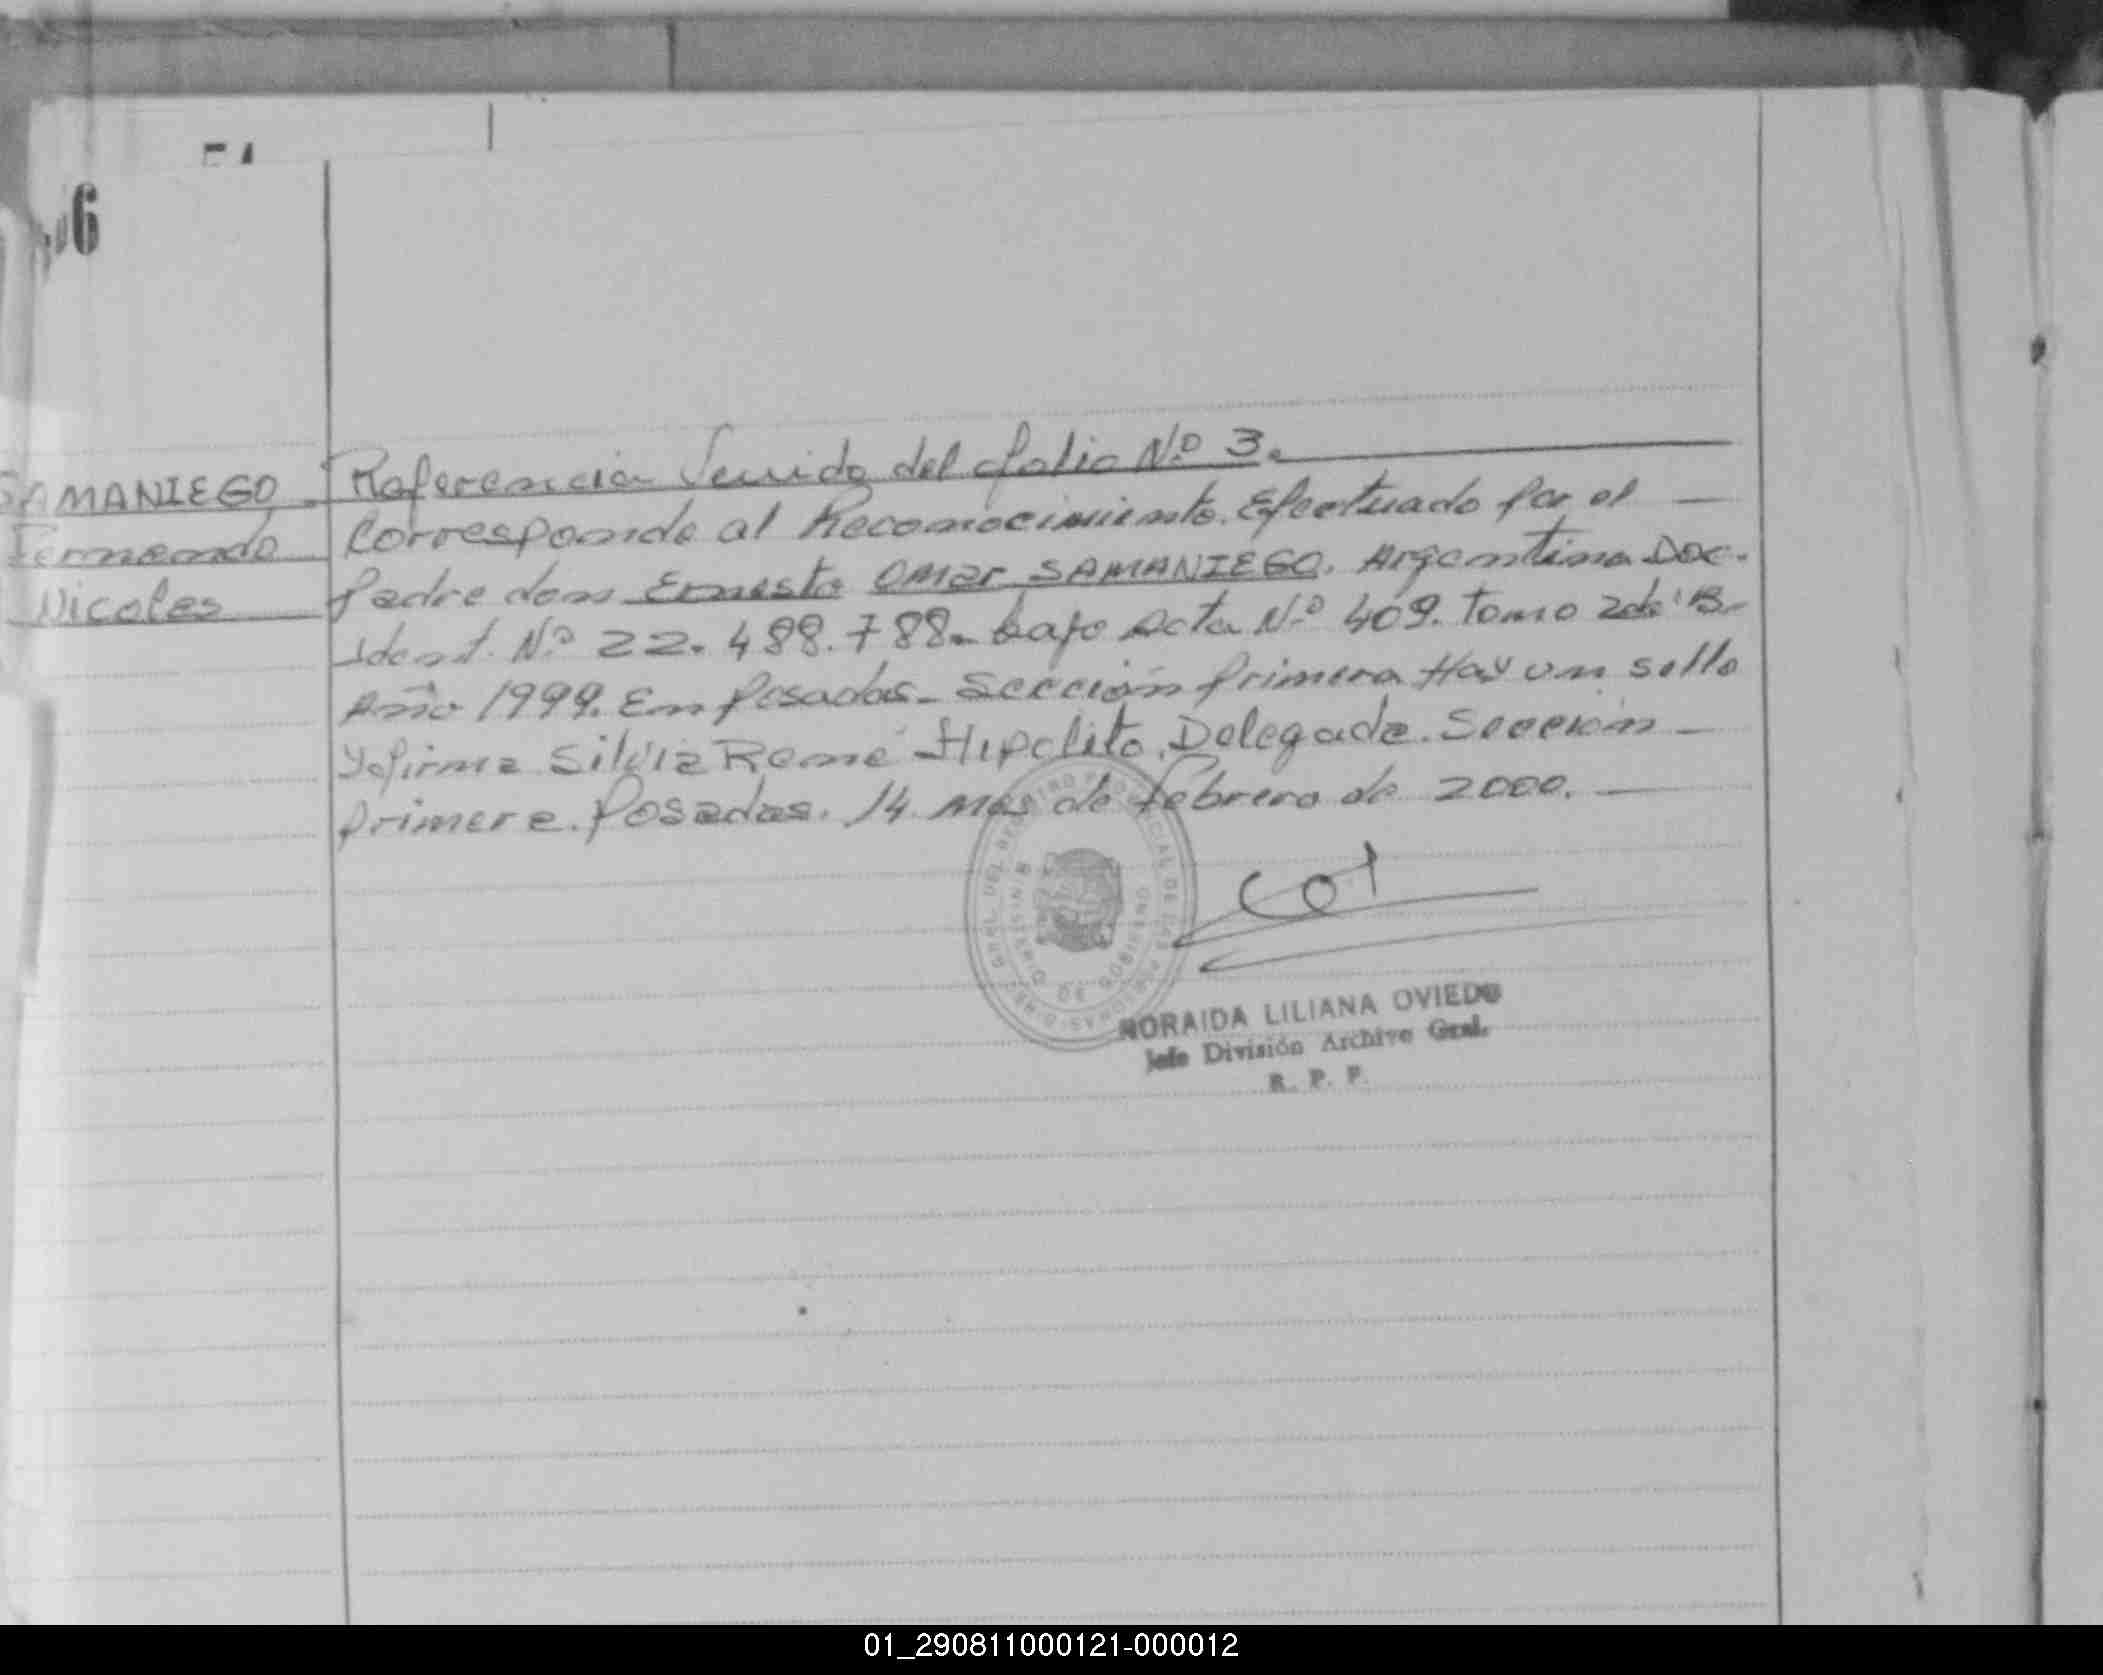 06
SAMANIEGO
Fernando
Nicolas
Referencia Venida del folio N.º 3.
Corresponde al Reconocimiento. Efectuado por el
Padre don Ernesto Omar SAMANIEGO. Argentino Doc.
Ident. N.º 22.488.788. bajo Acta N.º 409. Tomo 2do "B"
Año 1999. En Posadas. Sección primera Hay un sello
y firma Silvia René Hipolito. Delegada. Sección
primera. Posadas. 14 mes de Febrero de 2000.
NORAIDA LILIANA OVIEDO
Jefe División Archivo Gral.
R. P. P.
01_290811000121-000012